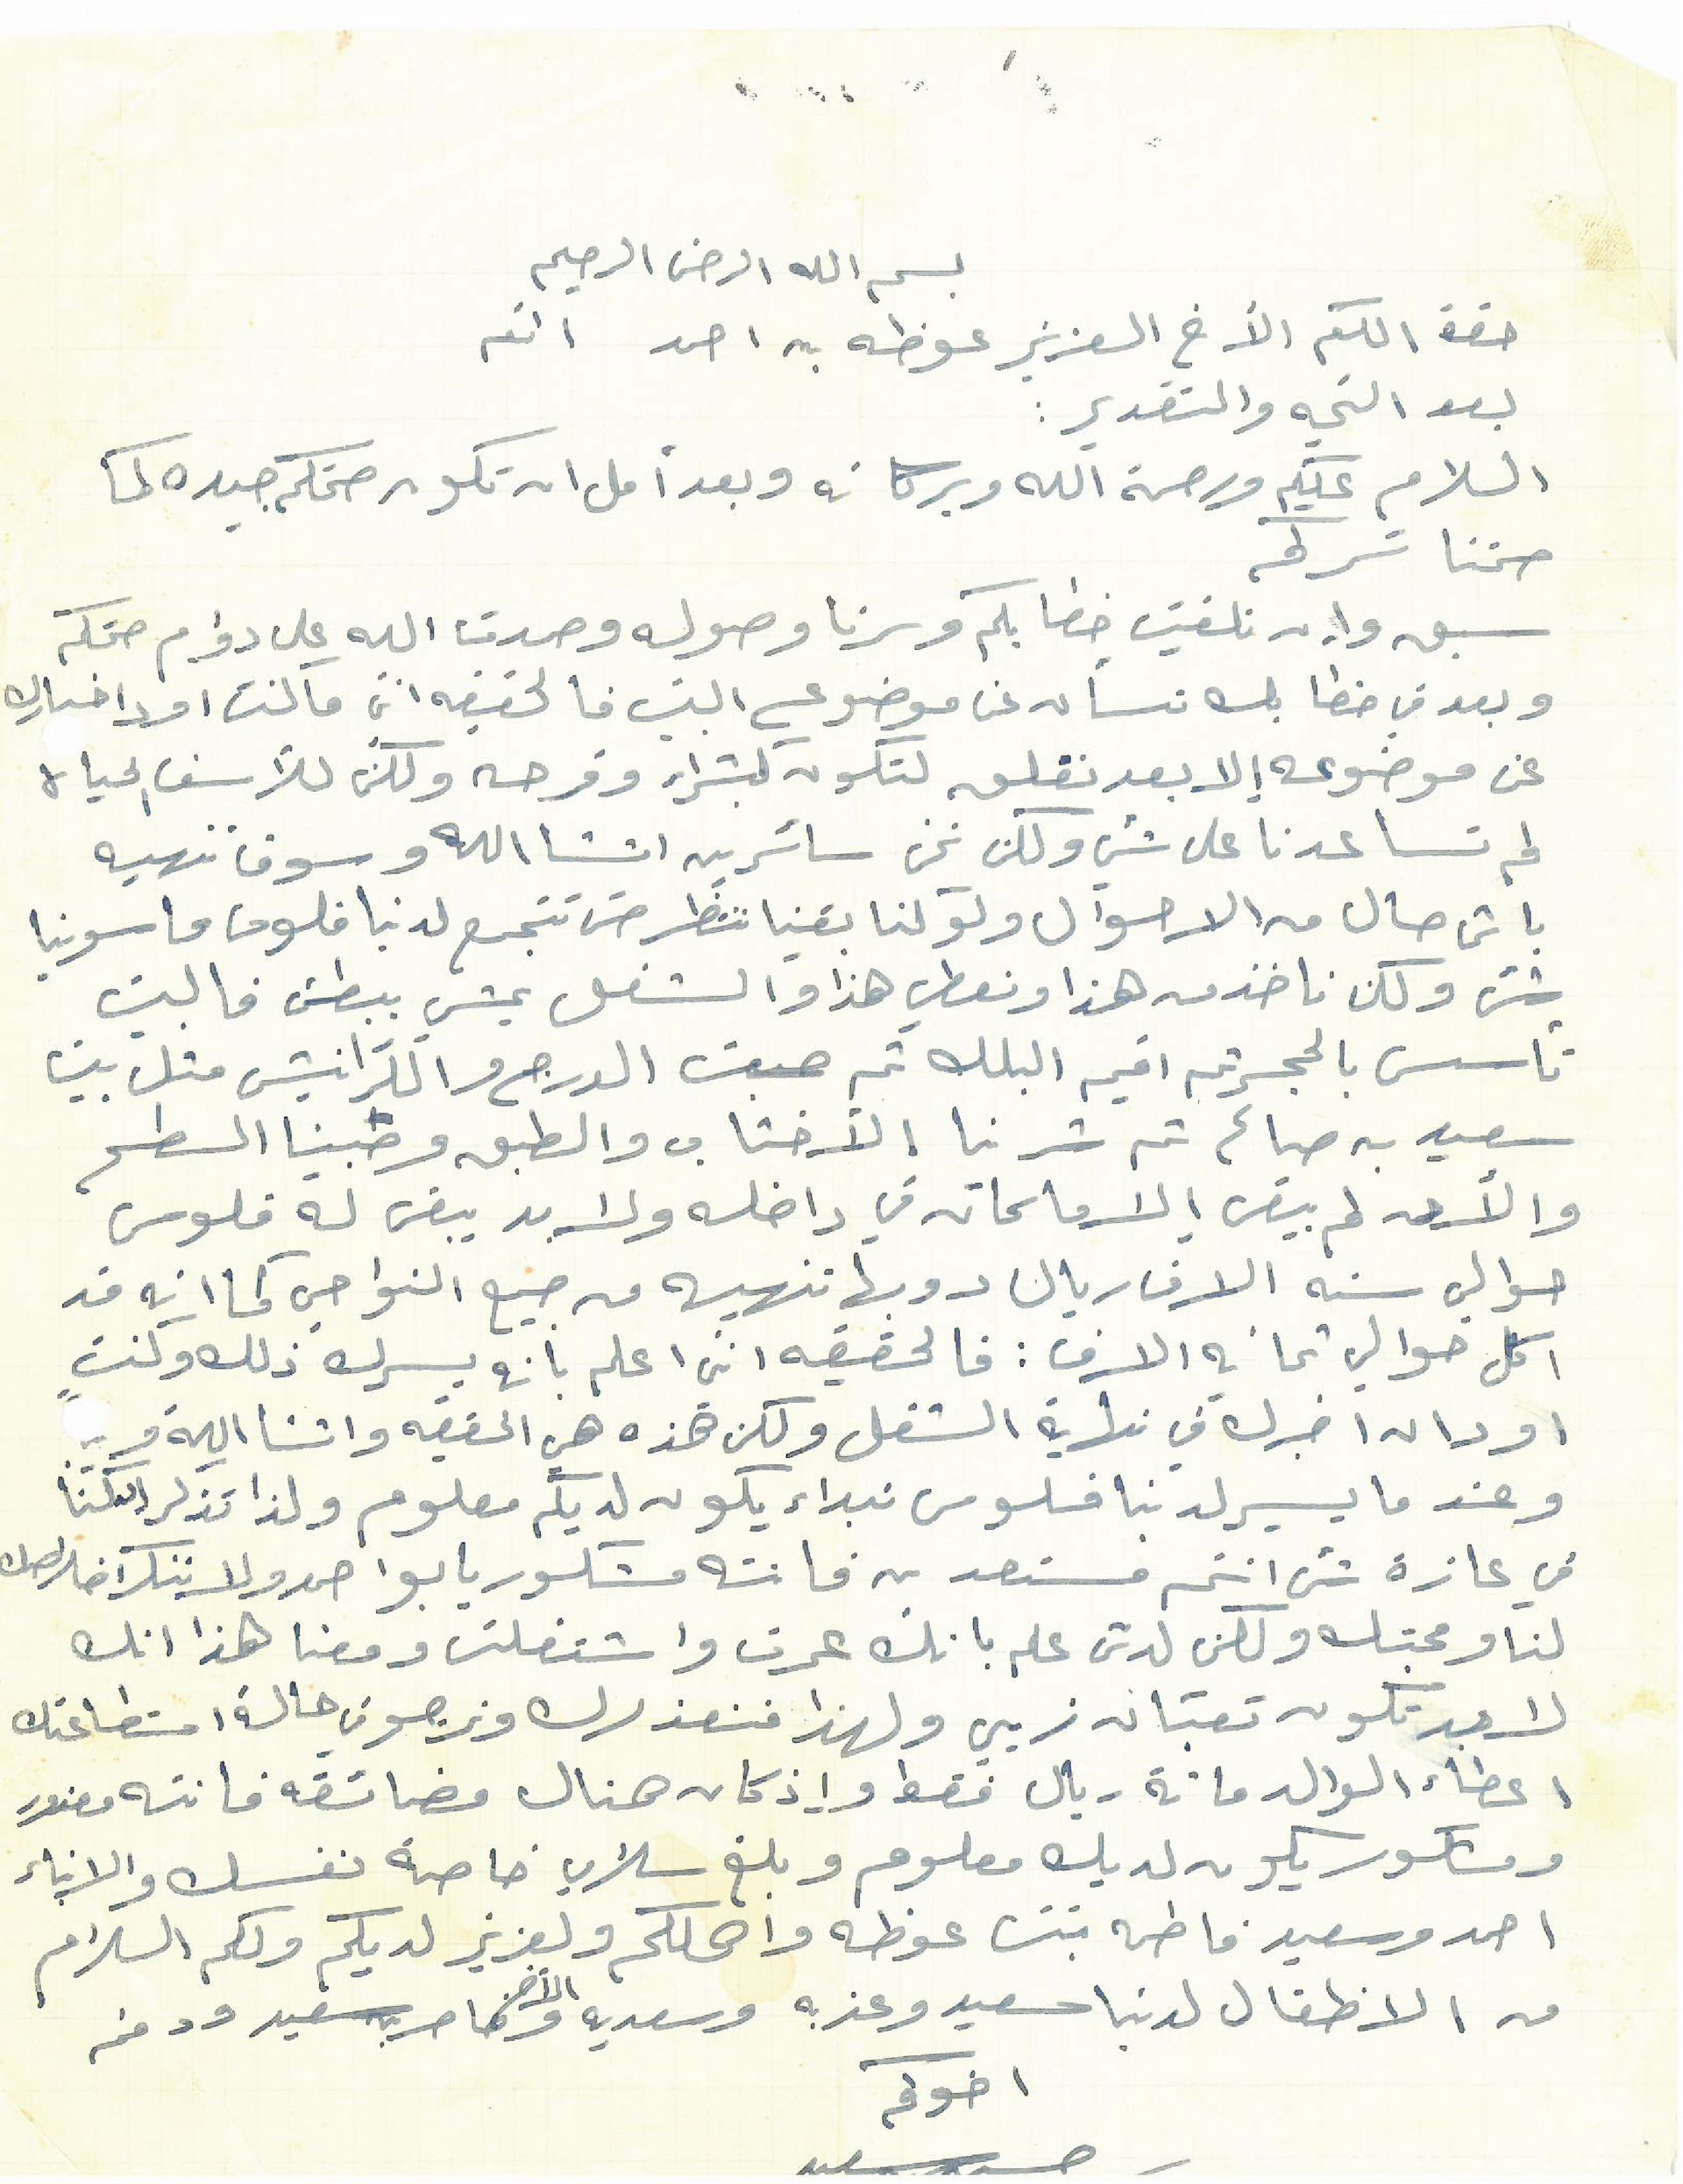 بسم الله الرحمن الرحيم
حضرة المكرم الأخ العزيز عوظه بن احمد المحترم
بعد التحيه والتقدير :
السلام عليكم ورحمة الله وبركاته وبعد أمل ان تكون صحتكم جيده كما
صحتنا تسركم
سبق وان تلقيت خطابكم وسرنا وصوله وحمدت الله على دوام صحتكم
وبعد في خطابك تسأن عن موضوع البيت فالحقيقه انني ماكنت اود اخبارك
عن موضوعه إلا بعد نقلق لتكون كبشراء وفرحه ولكن للأسف الحياة
لم تساعدنا على شي ولكن نحن سائرين انشا الله وسوف ننهيه
باي حال من الاحوال ولو كنا بقينا ننتظر حتى تتجمع لدنيا فلوس ما سوينا
شي ولكن ناخذ من هذا ونعطي هذا والشغل يمشي ببطئ فالبيت
تأسس بالحجر ثم اقيم البلك ثم صبت الدرج والكرانيش مثل بيت
سعيد بن صالح ثم شرنا الأخشاب والطبق وصبينا السطح
والأن لم يبقى إلا ماكان في داخله ولابد يبقى له فلوس
حوالي سته الاف ريال دوبها تنهيه من جميع النواحي كما انه قد
اكل حوالي ثمانيه الاف : فالحقيقه انني اعلم بانه يسرك ذلك وكنت
اود ان اخبرك في نهاية الشغل ولكن هذه هي الحقيقه وانشا الله قريب
وعند ما يسير لدنيا فلوس نبداء يكون لديكم معلوم ولذا تذكر انكنا
في عازة شي انتم مستعدين فانته مشكور يابو احمد ولا يتنكر اخلاصك
لنا ومحبتك ولكن لدي علم بانك عمرت واشتغلت ومعنا هذا انك
لابد تكون تعبان زيي ولهذا فنعذرك ونرجو في حالة استطاعتك
اعطاء الوالد مائة ريال فقط وإذ كان هناك مضائقه فانته معذور
ومشكور يكون لديك معلوم وبلغ سلامي خاصة نفسك والابناء
احمد وسعيد فاطمه بنت عوظه واهلكم ولعزيز لديكم ولكم السلام
من الاطفال لدنيا سعيد وعذبه وسعديه والأخ سعيد ودمتم
اخوكم
سعيد